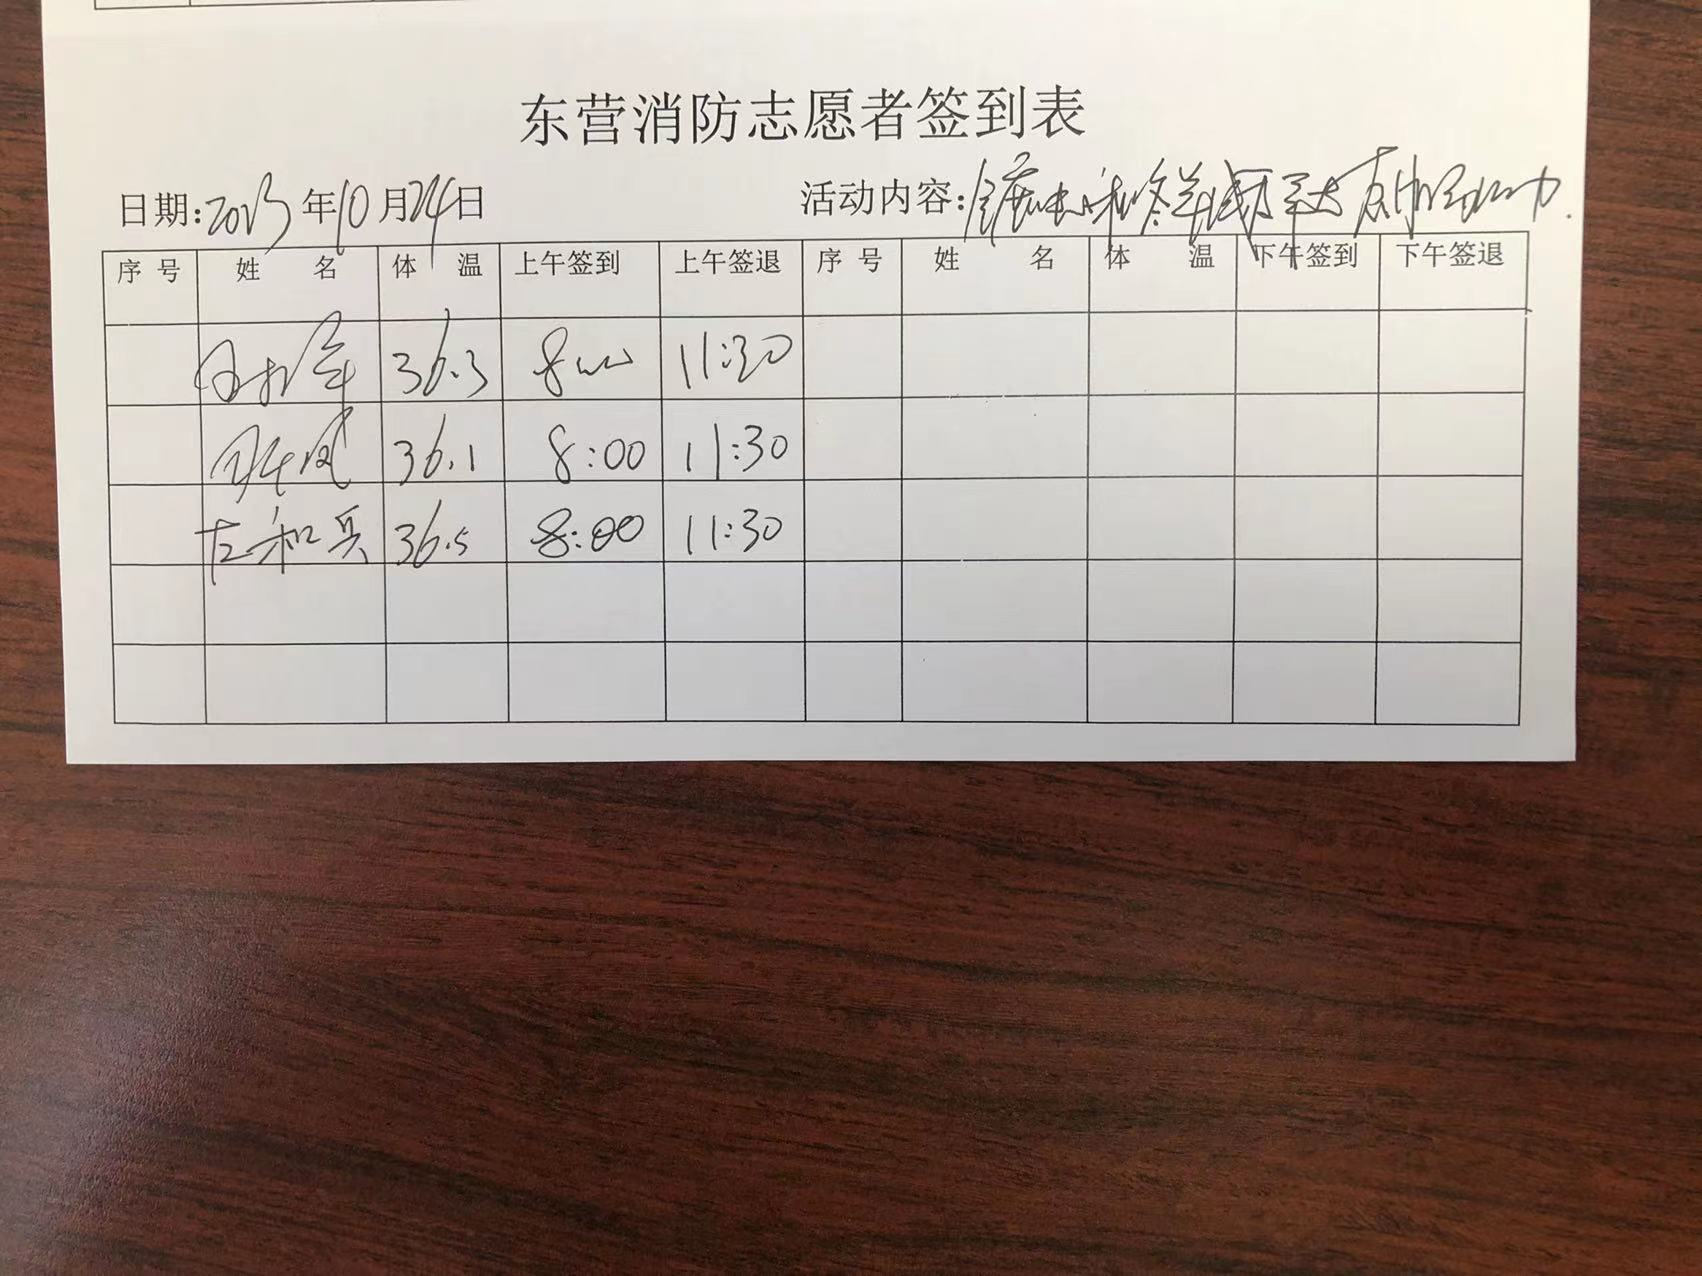 东营消防志愿者签到表
日期:2023年10月24日 活动内容:
序号 姓名 体温 上午签到 上午签退 序号 姓名 体温 下午签到 下午签退
36.3 8:00 11:30
36.1 8:00 11:30
左和兵 36.5 8:00 11:30